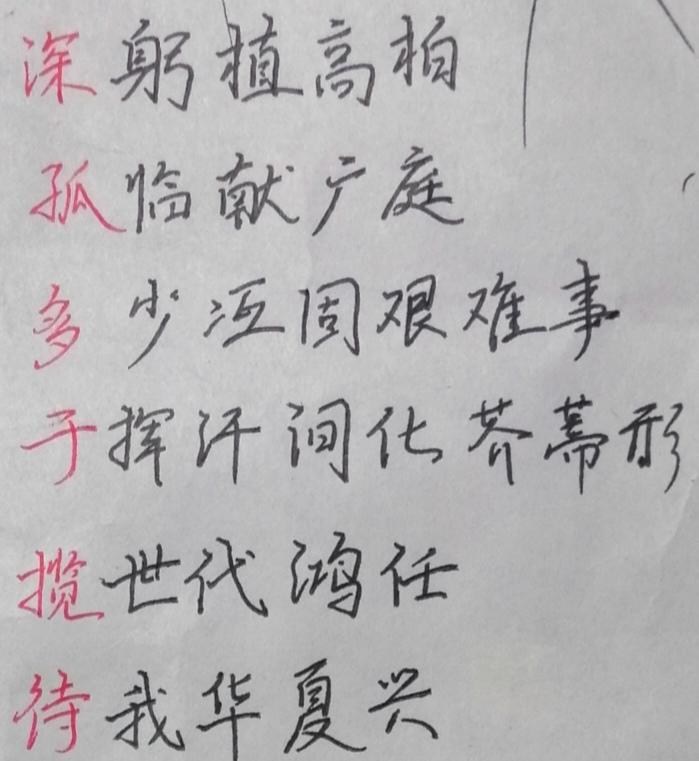 深躬植高柏
孤临献广庭
多少冱固艰难事
于挥汗间化芥蒂形
揽世代鸿任
待我华夏兴